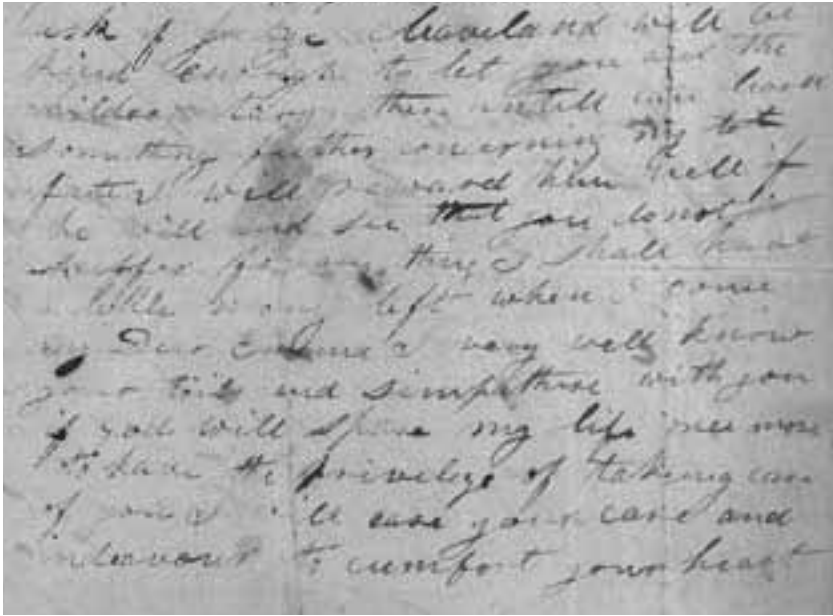 ask if judge Cleaveland will be
kind enough to let you and the
children tarry there untill can learn
something further concerning my
fate I will reward him well if
he will and see that you do not
suffer for any thing I shall have
a little mony left when I come
my Dear Emma I very well know
your toils and simpathise with you
if God will spare my life once more
to have the privelege of takeing care
of you I will ease your care and
indeavour to cumfort your heart